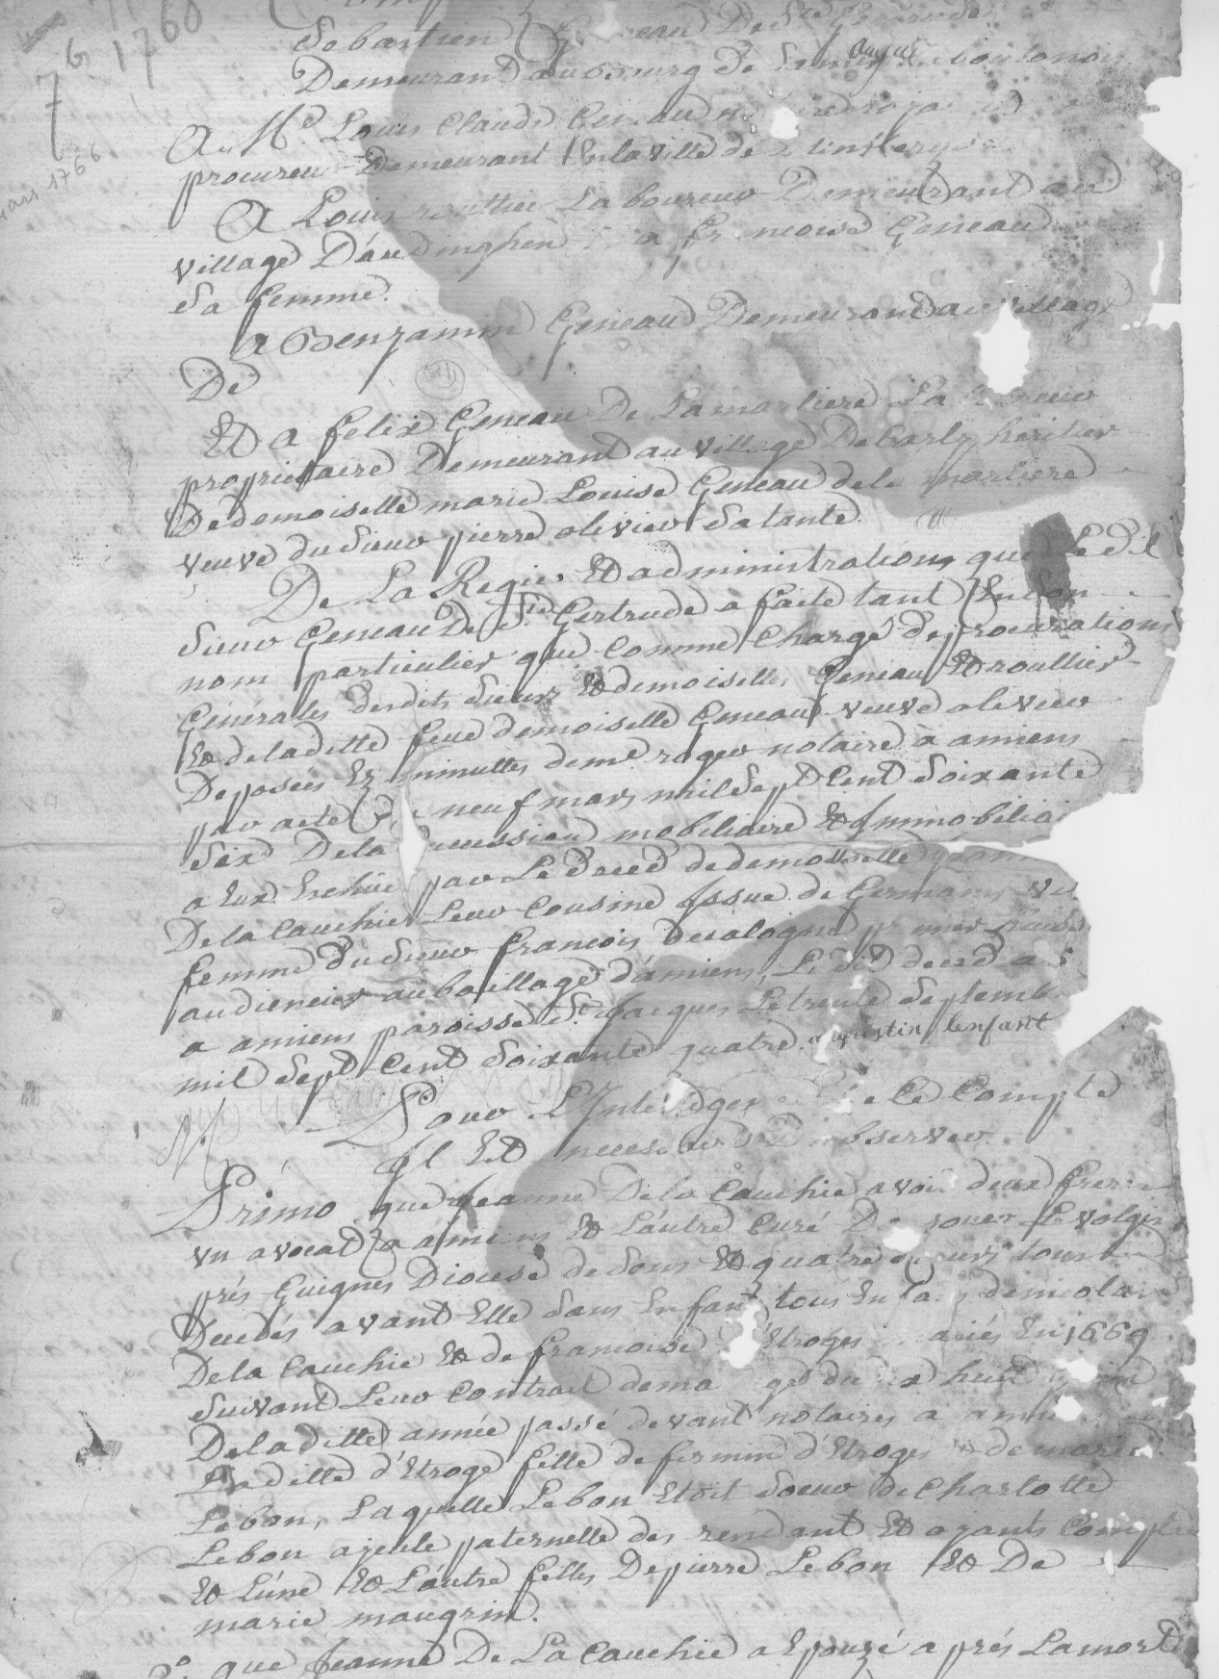 7 1760
Sebastien Geneau De Ste Gertrude
Demeurand au bourg de
A Me Louis Claude Geneau
procureur Demeurant En la ville de
A Louis roultier Laboureur Demeurant au
village D'audinghen francoise Geneau
Sa femme.
A Benjamin Geneau Demeurand au village
De
Et a felix Geneau De Lamarliere
proprietaire Demeurant au village De Carly heritier
De demoiselle marie Louise Geneau dela marliere
veuve du Sieur pierre olivier Sa tante.
De La Regie Et administration que Ledit
Sieur Geneau De Ste Gertrude a faite tant En Son
nom particulier que Comme Chargé de procurations
Générales desdits Sieurs Et demoiselles Geneau Et roultier
Et deladitte feue demoiselle Geneau veuve olivier
Deposées Es minuttes de me roger notaire à amiens
par acte du neuf mars mil Sept Cent Soixante
Six De la Succession mobiliaire Et Immobiliai
a Eux Echüe par Le Deced de demoiselle
De la Cauchie Leur Cousine Issue de Germain
femme du Sieur francois Decalogne premier
audiencier au baillage d'amiens, Ledit deced a
a amiens paroisse St Jacques Le trente Septembre
mil Sept Cent Soixante quatre. augustin lenfant
Pour L'Inteligence de Ce Compte
Il Est necessaire d'observer.
Primo que Jeanne De la Cauchie avoit deux freres
un avocat a amiens Et L'autre Curé De
prés Guignes Diocese de Sens Et quatre soeurs tous
Decedés avant Elle Sans Enfant, tous Enfans de nicolas
De la Cauchie Et de francoise d'Etroges mariés En 1669
Suivant Leur Contract de mariage du dix huit
De la ditte année passé devant notaires a amiens
La ditte d'Etroge fille de firmin d'Etroges Et de marie
Lebon, Laquelle Lebon Etoit Soeur de Charlotte
Lebon ayeule paternelle des rendant Et ayants Compte
Et L'une Et L'autre filles De pierre Lebon Et De
marie maugrin.
2o que Jeanne De La Cauchie a Epouzé aprés Lamort